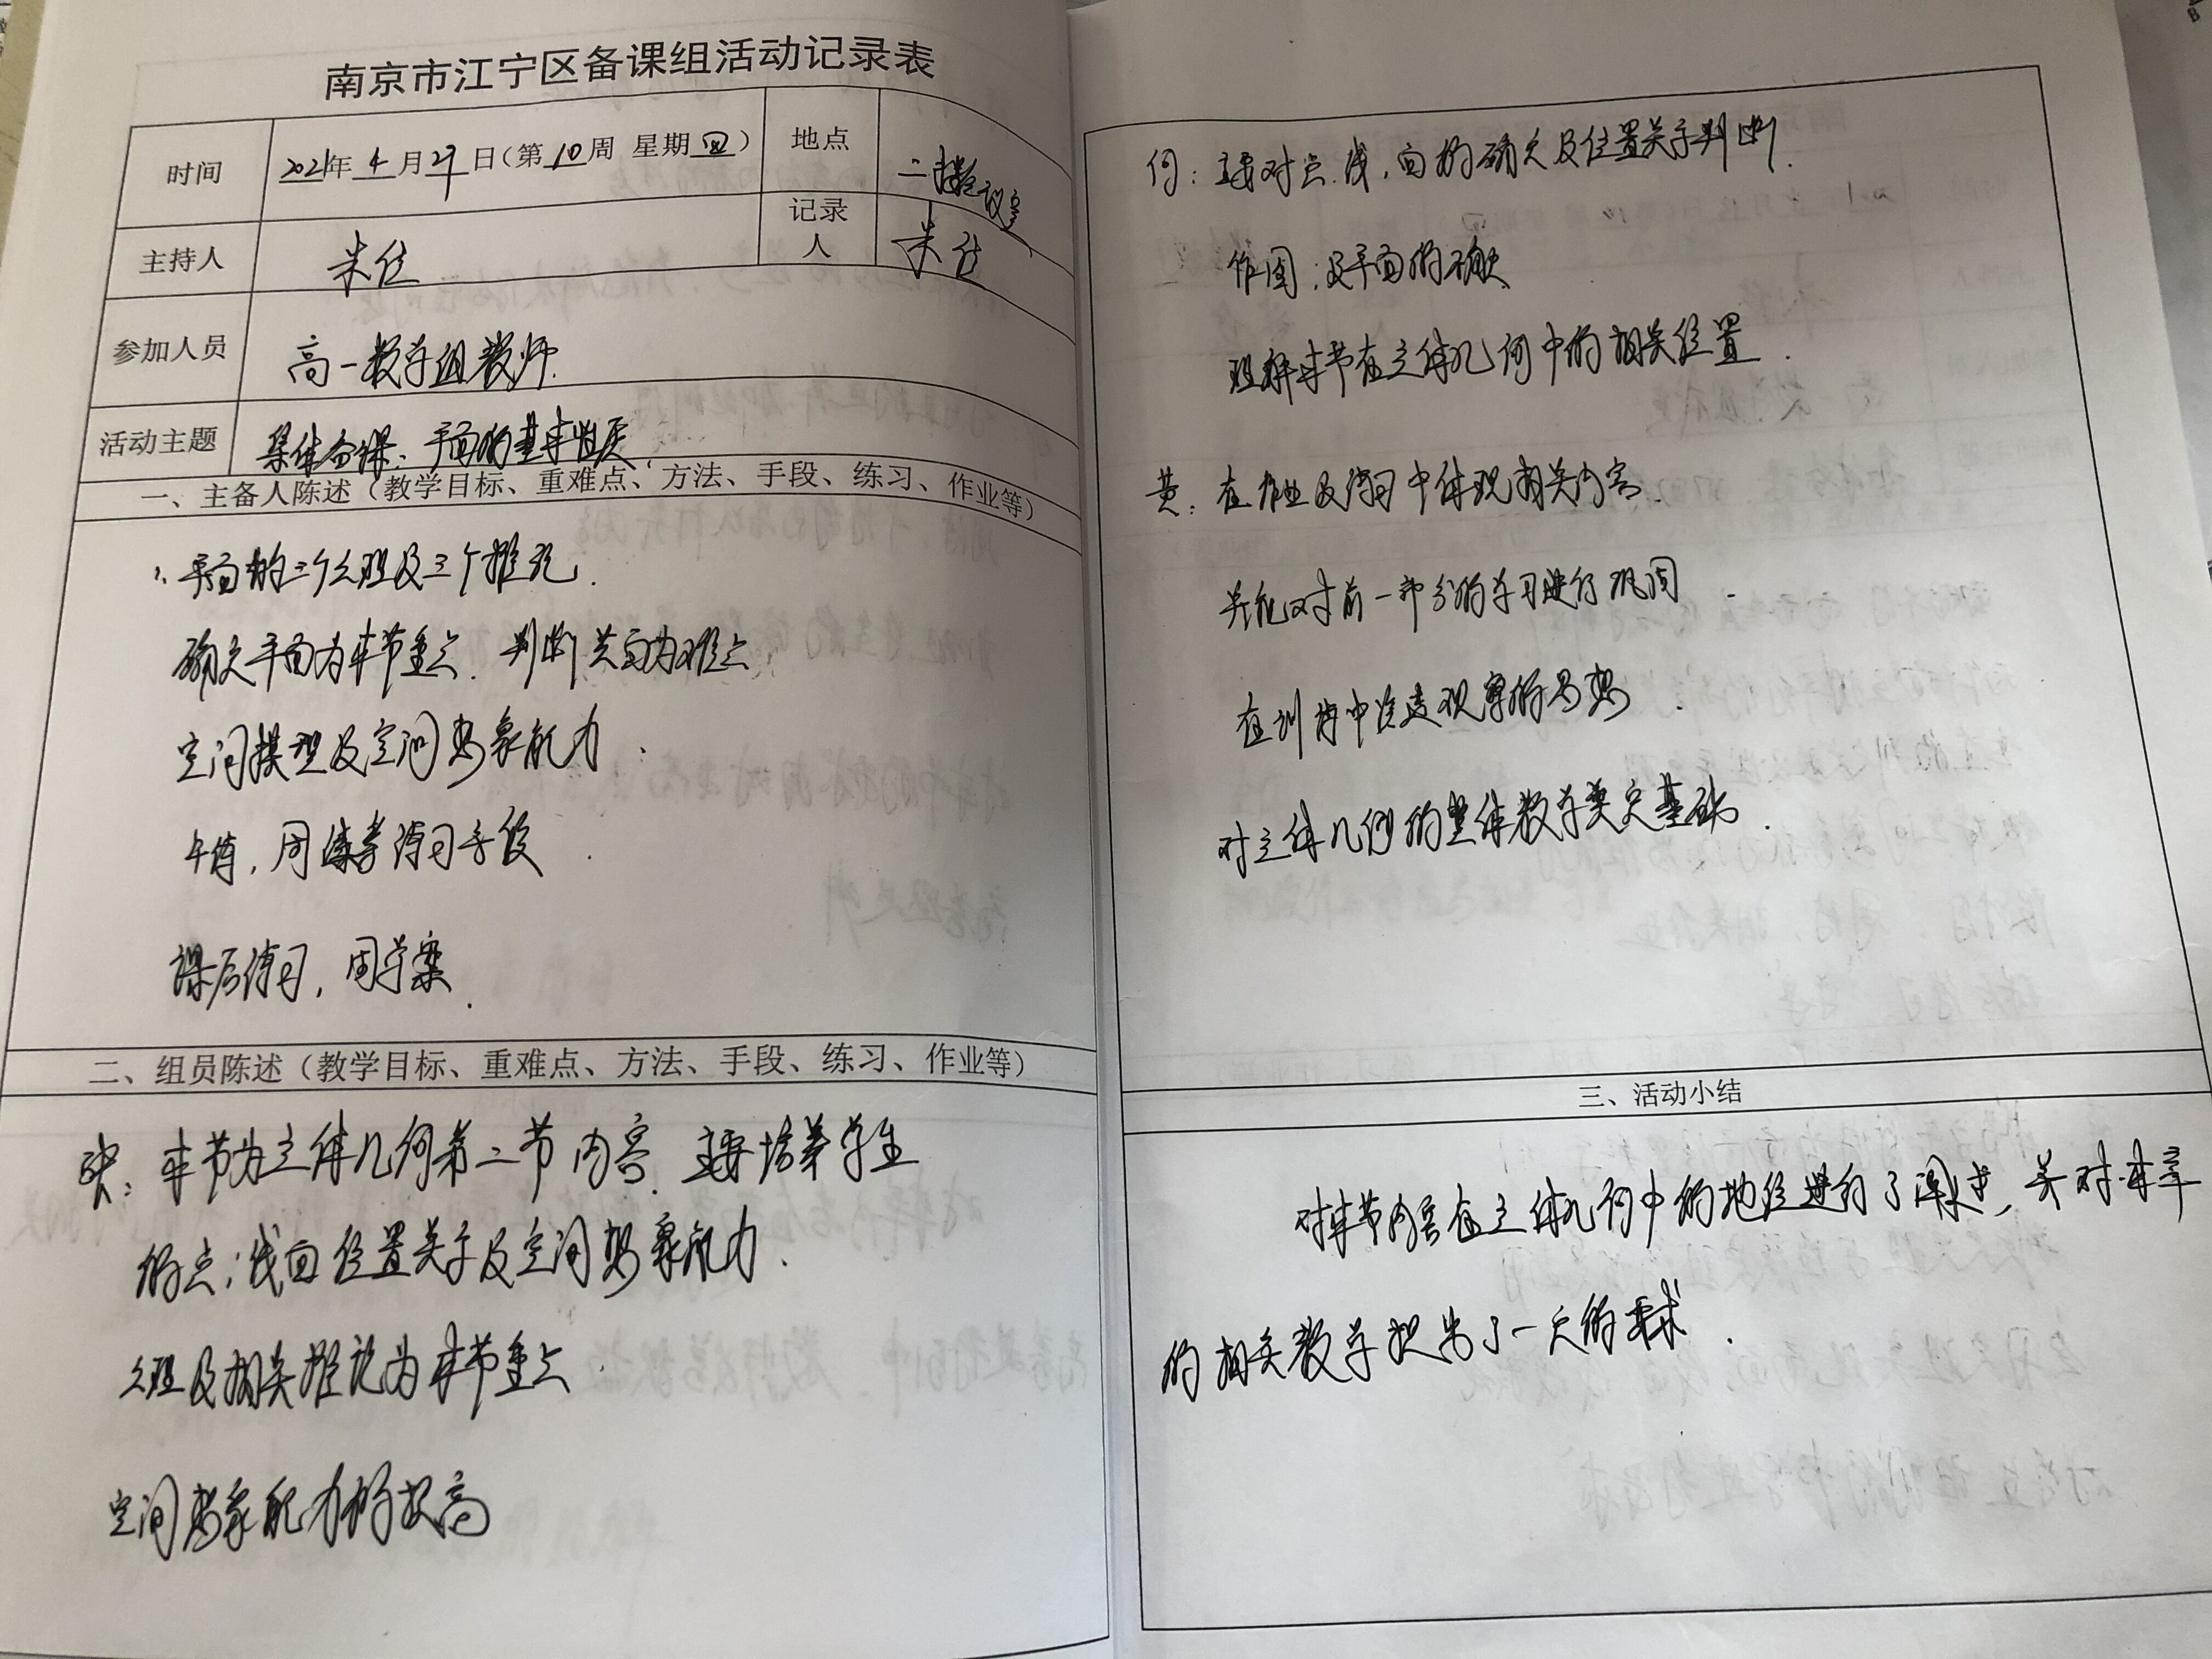 南京市江宁区备课组活动记录表
时间 2021年4月27日(第10周 星期四) 地点 二楼会议室
主持人 朱佳 记录人 朱佳
参加人员 高一数学组教师.
活动主题 集体备课: 平面的基本性质.
一、主备人陈述（教学目标、重难点、方法、手段、练习、作业等）
1. 平面的三个公理及三个推论.
确定平面为本节重点. 判断共面为难点.
空间模型及空间想象能力.
午值, 周练等练习手段.
课后练习, 周学案.
二、组员陈述（教学目标、重难点、方法、手段、练习、作业等）
本节为立体几何第二节内容. 主要培养学生
的点, 线面位置关系及空间想象能力.
公理及相关推论为本节重点.
空间想象能力的提高
何: 主要对点.线,面的确定及位置关系判断.
作图;及平面的确定
理解本节在立体几何中的相关位置.
黄: 在作业及练习中体现相关内容.
并能对前一部分的学习进行巩固.
在训练中渗透观察的思想.
对立体几何的整体教学奠定基础.
三、活动小结
对本节内容在立体几何中的地位进行了阐述, 并对本章
的相关教学提出了一定的要求.